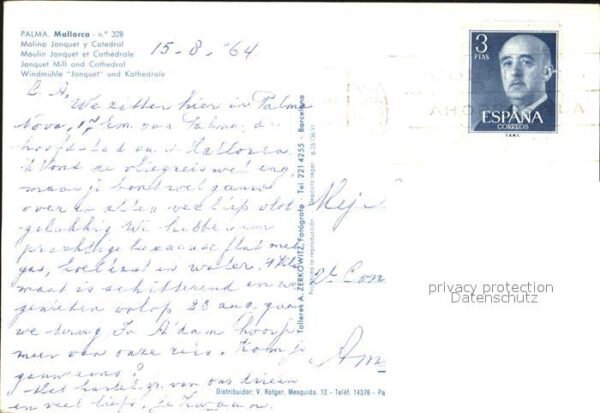 PALMA. Mallorca - n.º 328
Molino Jonquet y Catedral
Moulin Jonquet et Cathédrale
Jonquet Mill and Cathedral
Windmühle "Jonquet" und Kathedrale
15-8-'64
We zitten hier in Palma
Nova, 17 km. van Palma, de
hoofdstad van Mallorca.
Vond de vliegreis wel eng,
maar je komt wel gauw
over en alles verliep vlot
gelukkig We hebben een
prachtige flat met
gas, en water.
maat is schitterend en we
genieten volop. 28 aug. gaan
we terug. In A'dam hoor je
meer van onze reis. Kom je
gauw eens?
Het hartel. gr. van ons drieën
en veel liefs,
Talleres A. ZERKOWITZ, Fotógrafo Tel. 221 4255 - Barcelona
Prohibida la reproducción
Depósito legal
Mej.
Con
Am
3
PTAS
ESPAÑA
CORREOS
F.N.M.T.
privacy protection
Datenschutz
Distribuidor: V. Rotger, Mesquida, 12 - Teléf. 14376 - Pa